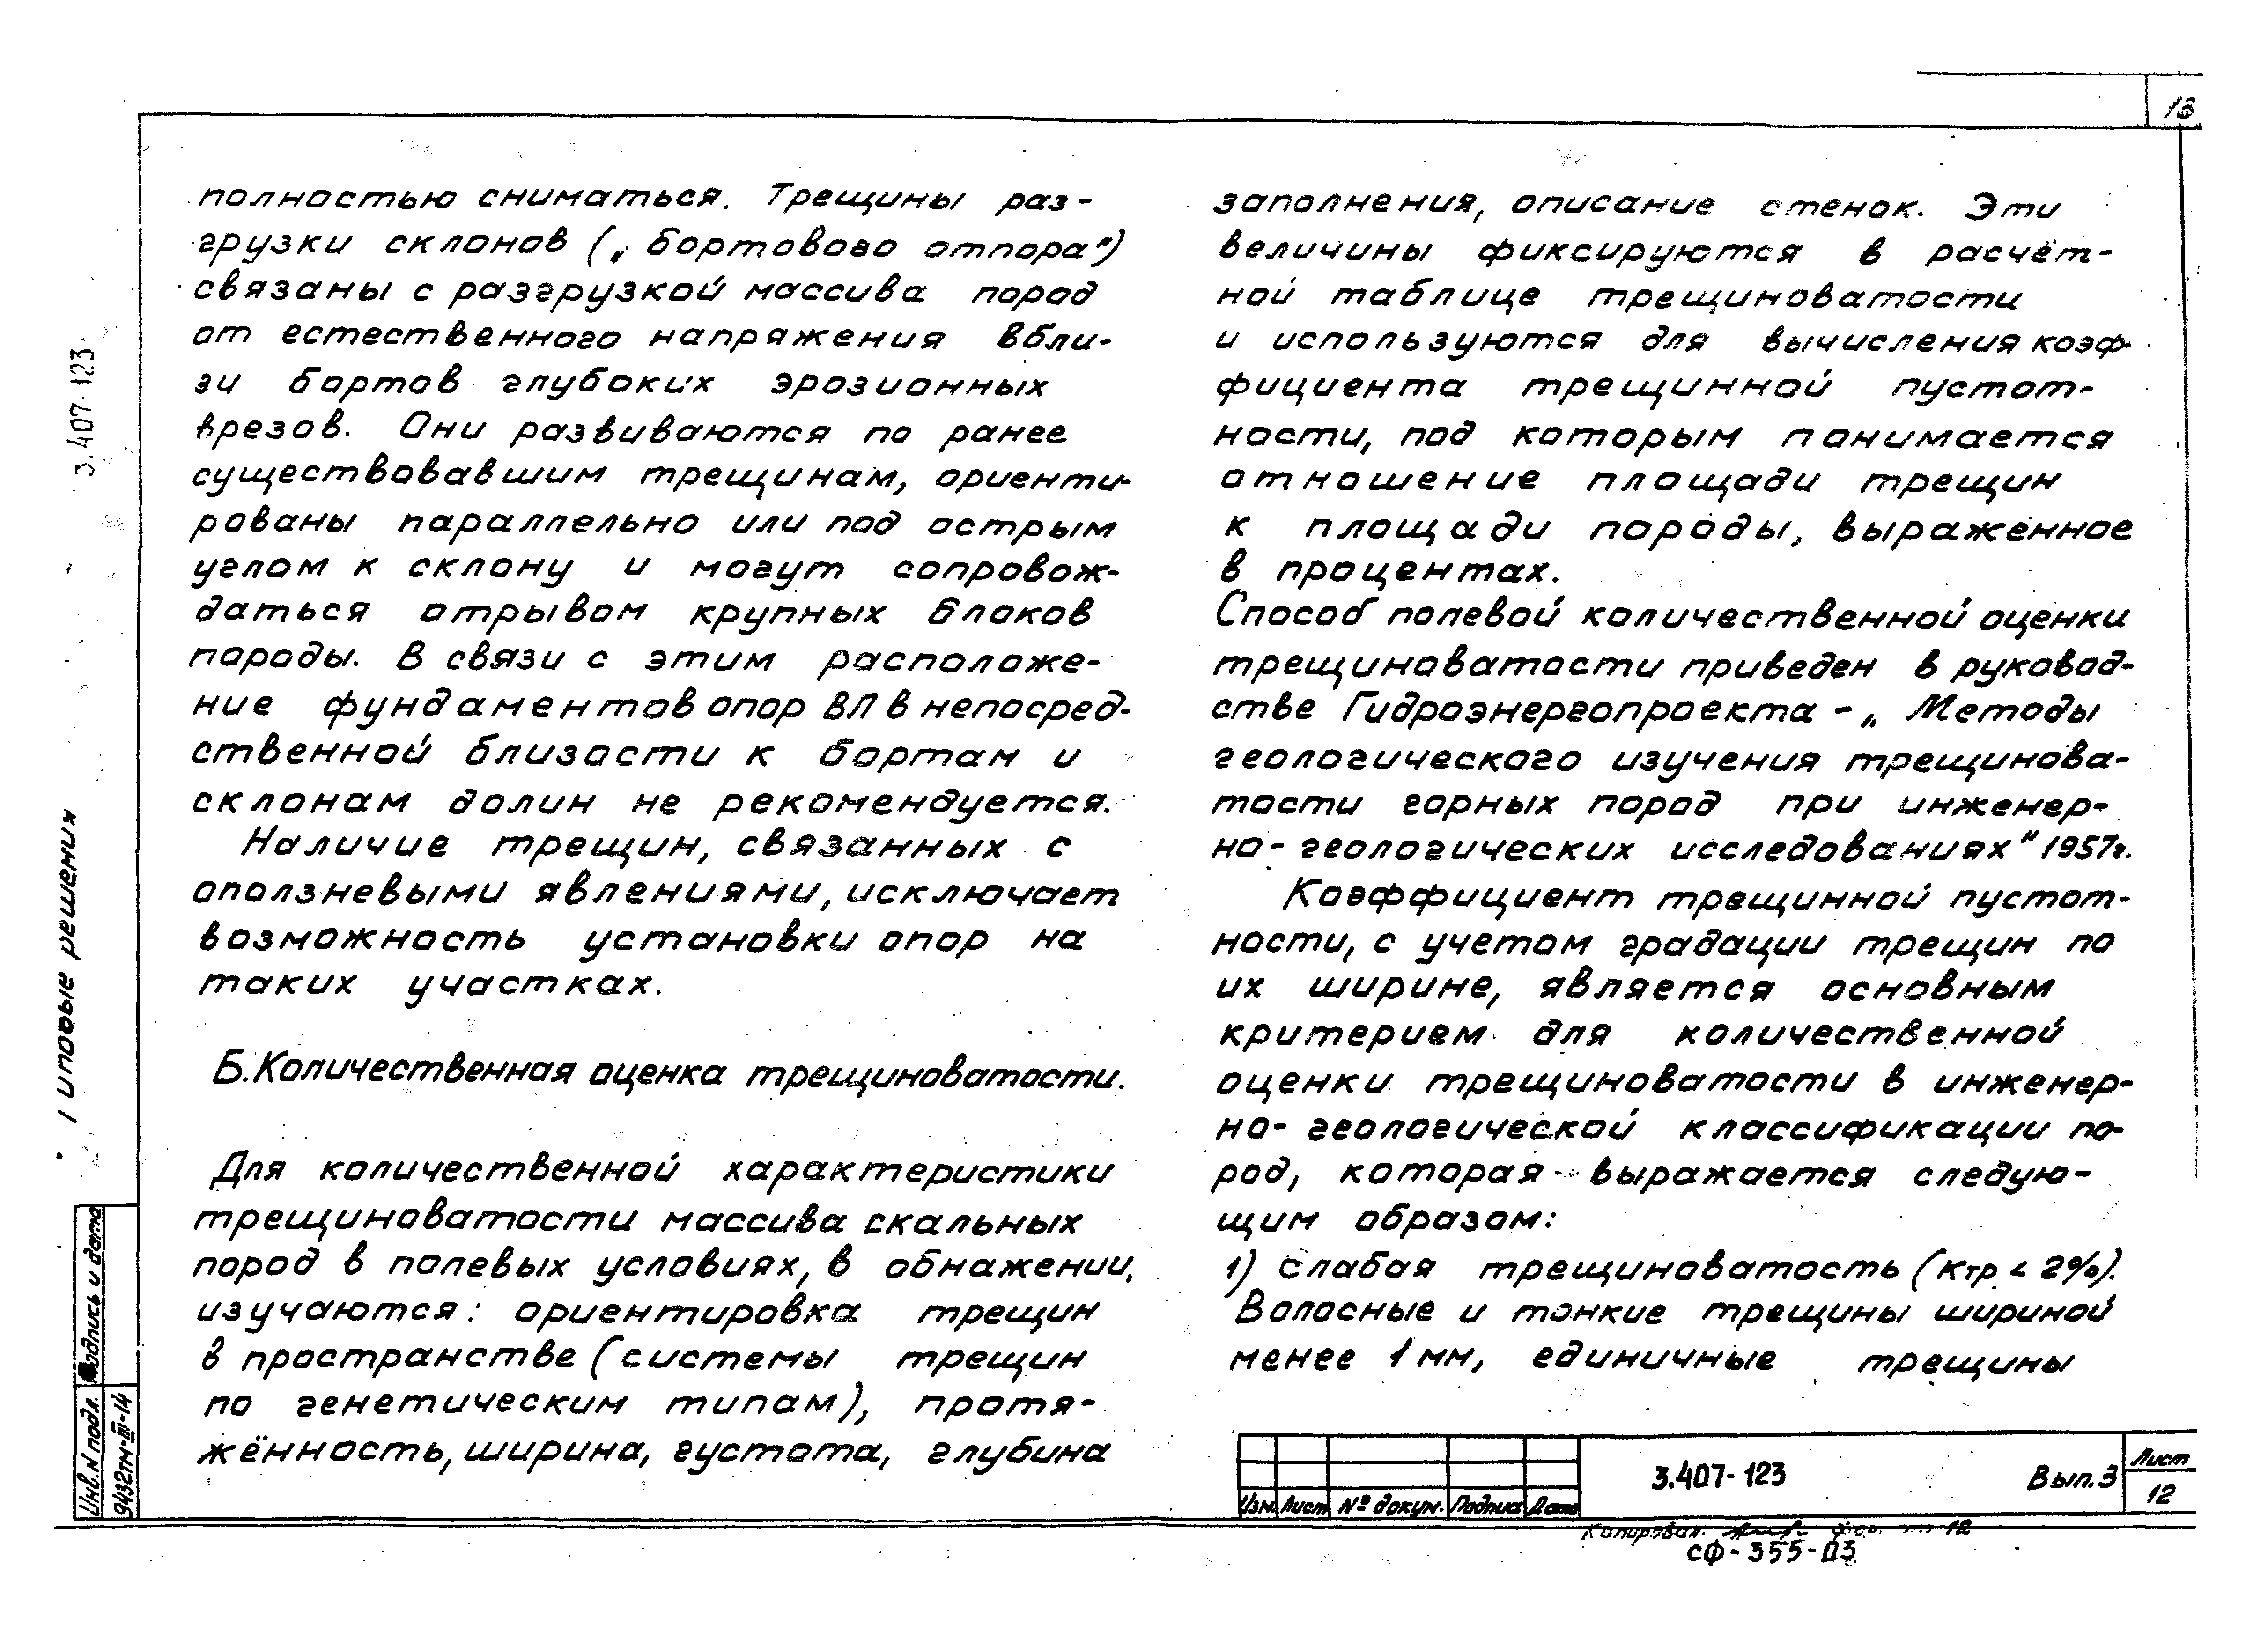 13
полностью сниматься. Трещины раз-
грузки склонов („бортового отпора")
связаны с разгрузкой массива пород
от естественного напряжения вбли-
зи бортов глубоких эрозионных
врезов. Они развиваются по ранее
существовавшим трещинам, ориенти-
рованы параллельно или под острым
углом к склону и могут сопровож-
даться отрывом крупных блоков
породы. В связи с этим расположе-
ние фундаментов опор ВЛ в непосред-
ственной близости к бортам и
склонам долин не рекомендуется.
Наличие трещин, связанных с
оползневыми явлениями, исключает
возможность установки опор на
таких участках.
Б. Количественная оценка трещиноватости.
Для количественной характеристики
трещиноватости массива скальных
пород в полевых условиях, в обнажении,
изучаются: ориентировка трещин
в пространстве (системы трещин
по генетическим типам), протя-
жённость, ширина, густота, глубина
заполнения, описание стенок. Эти
величины фиксируются в расчёт-
ной таблице трещиноватости
и используются для вычисления коэф-
фициента трещинной пустот-
ности, под которым понимается
отношение площади трещин
к площади породы, выраженное
в процентах.
Способ полевой количественной оценки
трещиноватости приведен в руковод-
стве Гидроэнергопроекта -„Методы
геологического изучения трещинова-
тости горных пород при инженер-
но-геологических исследованиях" 1957г.
Коэффициент трещинной пустот-
ности, с учетом градации трещин по
их ширине, является основным
критерием для количественной
оценки трещиноватости в инженер-
но-геологической классификации по-
род, которая выражается следую-
щим образом:
1) слабая трещиноватость (Ктр < 2%).
Волосные и тонкие трещины шириной
менее 1 мм, единичные трещины
3.407-123
Типовые решения
Подпись и дата
Инв. N подл.
9432тм-III-14
Изм. Лист № докум. Подпись Дата
3.407-123 Вып. 3
Лист
12
Копировал. формат 12
СФ-355-03